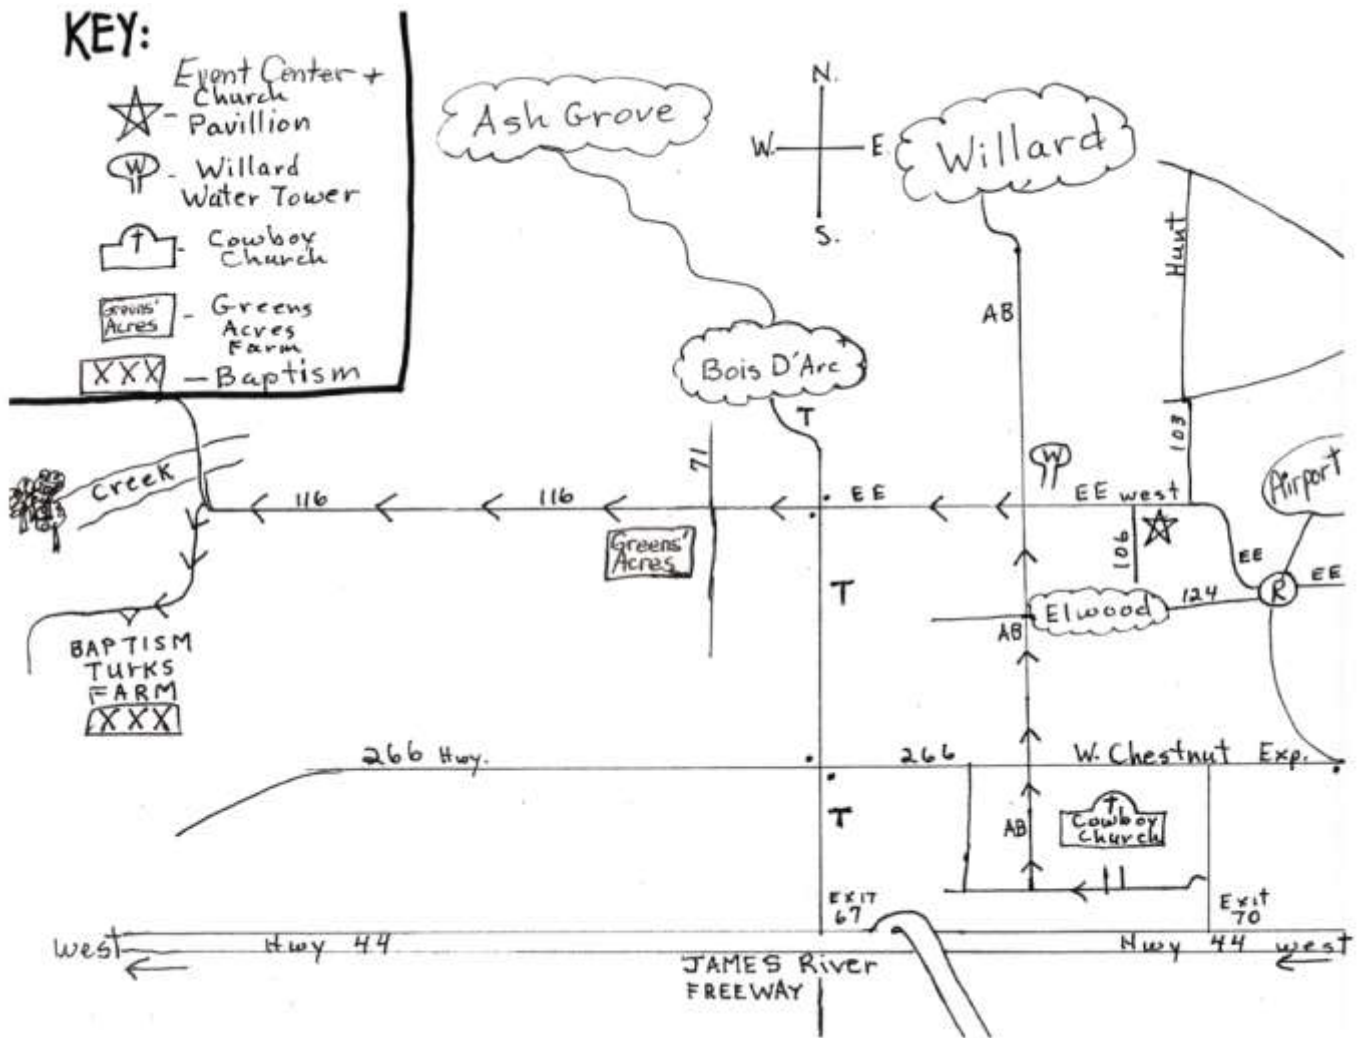 KEY:
Event Center +
Church
Pavillion
W - Willard
Water Tower
Cowboy
Church
Greens'
Acres
- Greens
Acres
Farm
XXX - Baptism
Ash Grove
N.
W. E.
S.
Willard
Hunt
AB
Bois D'Arc
T
103
71
W
Airport
Creek
116
116
EE
EE west
Greens'
Acres
106
EE
R
EE
T
124
Elwood
AB
BAPTISM
TURKS
FARM
XXX
266 Hwy.
266
W. Chestnut Exp.
T
AB
Cowboy
Church
EXIT
67
Exit
70
West
Hwy 44
Hwy 44 west
JAMES River
FREEWAY